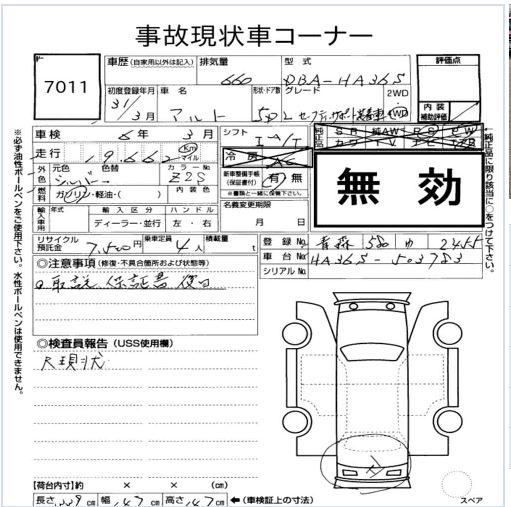 事故現状車コーナー
7011
車歴 (自家用以外は記入)
排気量
型式
評価点
660
DBA-HA36S
初度登録年月
車名
形状・ドア数
グレード
2WD
31/3月
アルト
5D
4WD
内装
補助評価
車検
6年 3月
シフト
走行
19,662
Km
マイル
冷房
AC
新車整備手帳
(保証書付)
有・無
※書類と一緒に保管して下さい。
無効
外色
元色
色替
カラーNo
シルバー
Z2S
燃料
ガソリン・軽油・( )
内装色
名義変更期限
月 日
輸入車用
年式
輸入区分
ハンドル
ディーラー・並行
左・右
リサイクル
預託金
7,500円
乗定員
4人
積載量
t
登録No
青森 580
2455
車台No
HA36S-503783
シリアルNo
◎注意事項 (修復・不具合箇所および状態等)
取説 保証書 後日
◎検査員報告 (USS使用欄)
現状
【荷台内寸】約 × × (cm)
長さ 339 cm 幅 147 cm 高さ 147 cm ←(車検証上の寸法)
スペア
※必ず油性ボールペンをご使用下さい。水性ボールペンは使用できません。
←純正品に限り該当に○をつけて下さい。